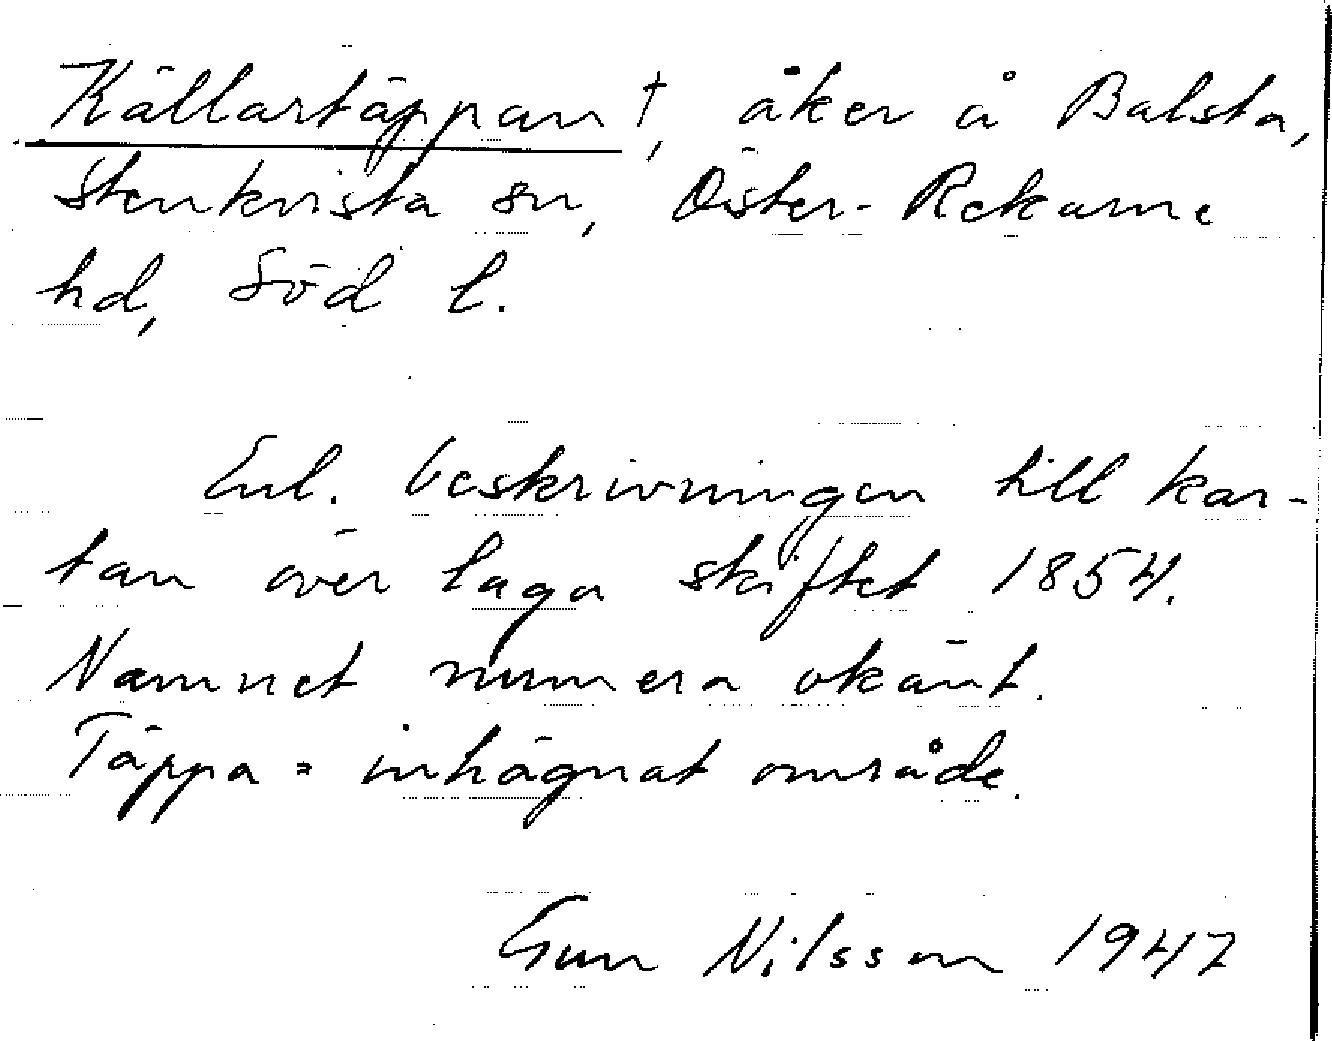 Källartäppan †, åker å Balsta,
Stenkvista sn, Öster-Rekarne
hd, Söd l.
Enl. beskrivningen till kar-
tan över laga skiftet 1854.
Namnet numera okänt.
Täppa = inhägnat område.
Gun Nilsson 1947